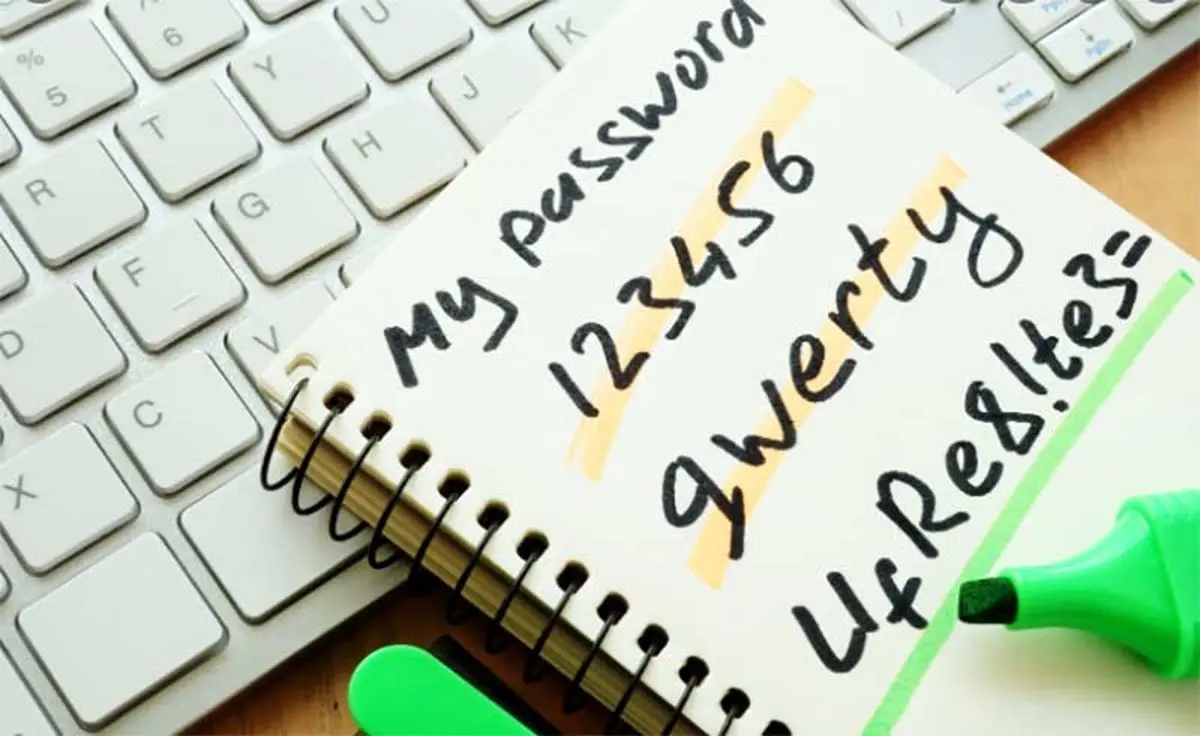 My password
123456
qwerty
UfRe8!te3=
% 5
6
Y
U
K
R
T
H
J
D
F
G
X
C
V
Home